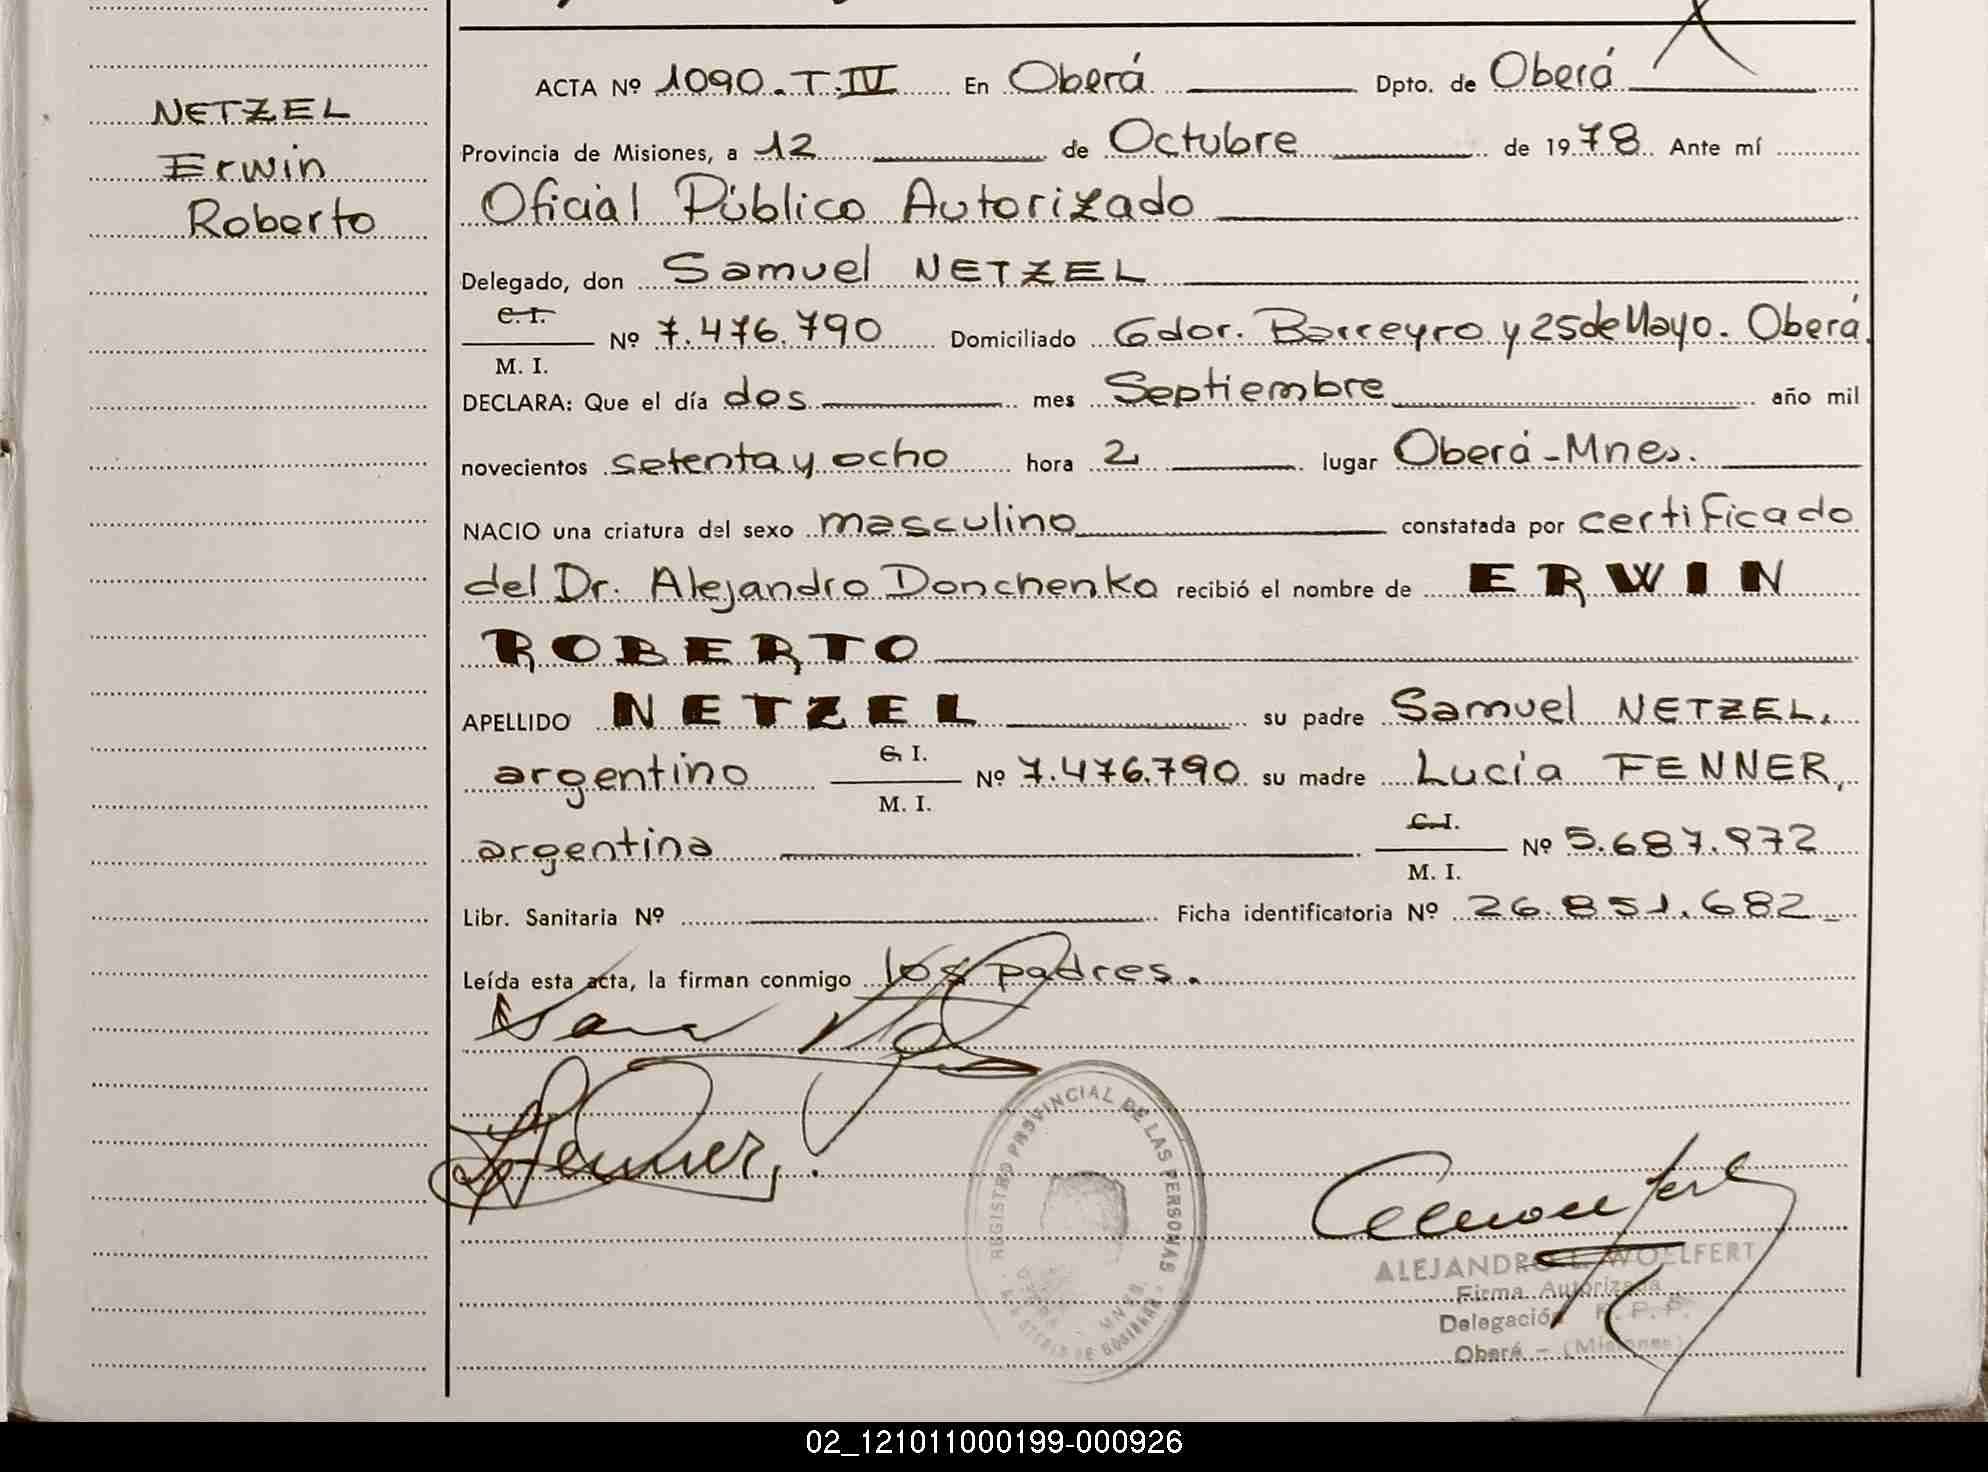 NETZEL
Erwin
Roberto
ACTA Nº 1090. T. IV En Oberá Dpto. de Oberá
Provincia de Misiones, a 12 de Octubre de 1978 Ante mí
Oficial Público Autorizado
Delegado, don Samuel NETZEL
C. I.
Nº 7.476.790 Domiciliado Gdor. Barreyro y 25 de Mayo. Oberá.
M. I.
DECLARA: Que el día dos mes Septiembre año mil
novecientos setenta y ocho hora 2 lugar Oberá - Mnes.
NACIO una criatura del sexo masculino constatada por certificado
del Dr. Alejandro Donchenko recibió el nombre de ERWIN
ROBERTO
APELLIDO NETZEL su padre Samuel NETZEL,
argentino C. I. Nº 7.476.790 su madre Lucía FENNER,
M. I.
argentina C. I. Nº 5.687.972
M. I.
Libr. Sanitaria Nº Ficha identificatoria Nº 26.851.682
Leída esta acta, la firman conmigo los padres.
Fenner
REGISTRO PROVINCIAL DE LAS PERSONAS
ALEJANDRO L. WOELFERT
Firma Autorizada
Delegación R. P. P.
Oberá - (Misiones)
02_121011000199-000926